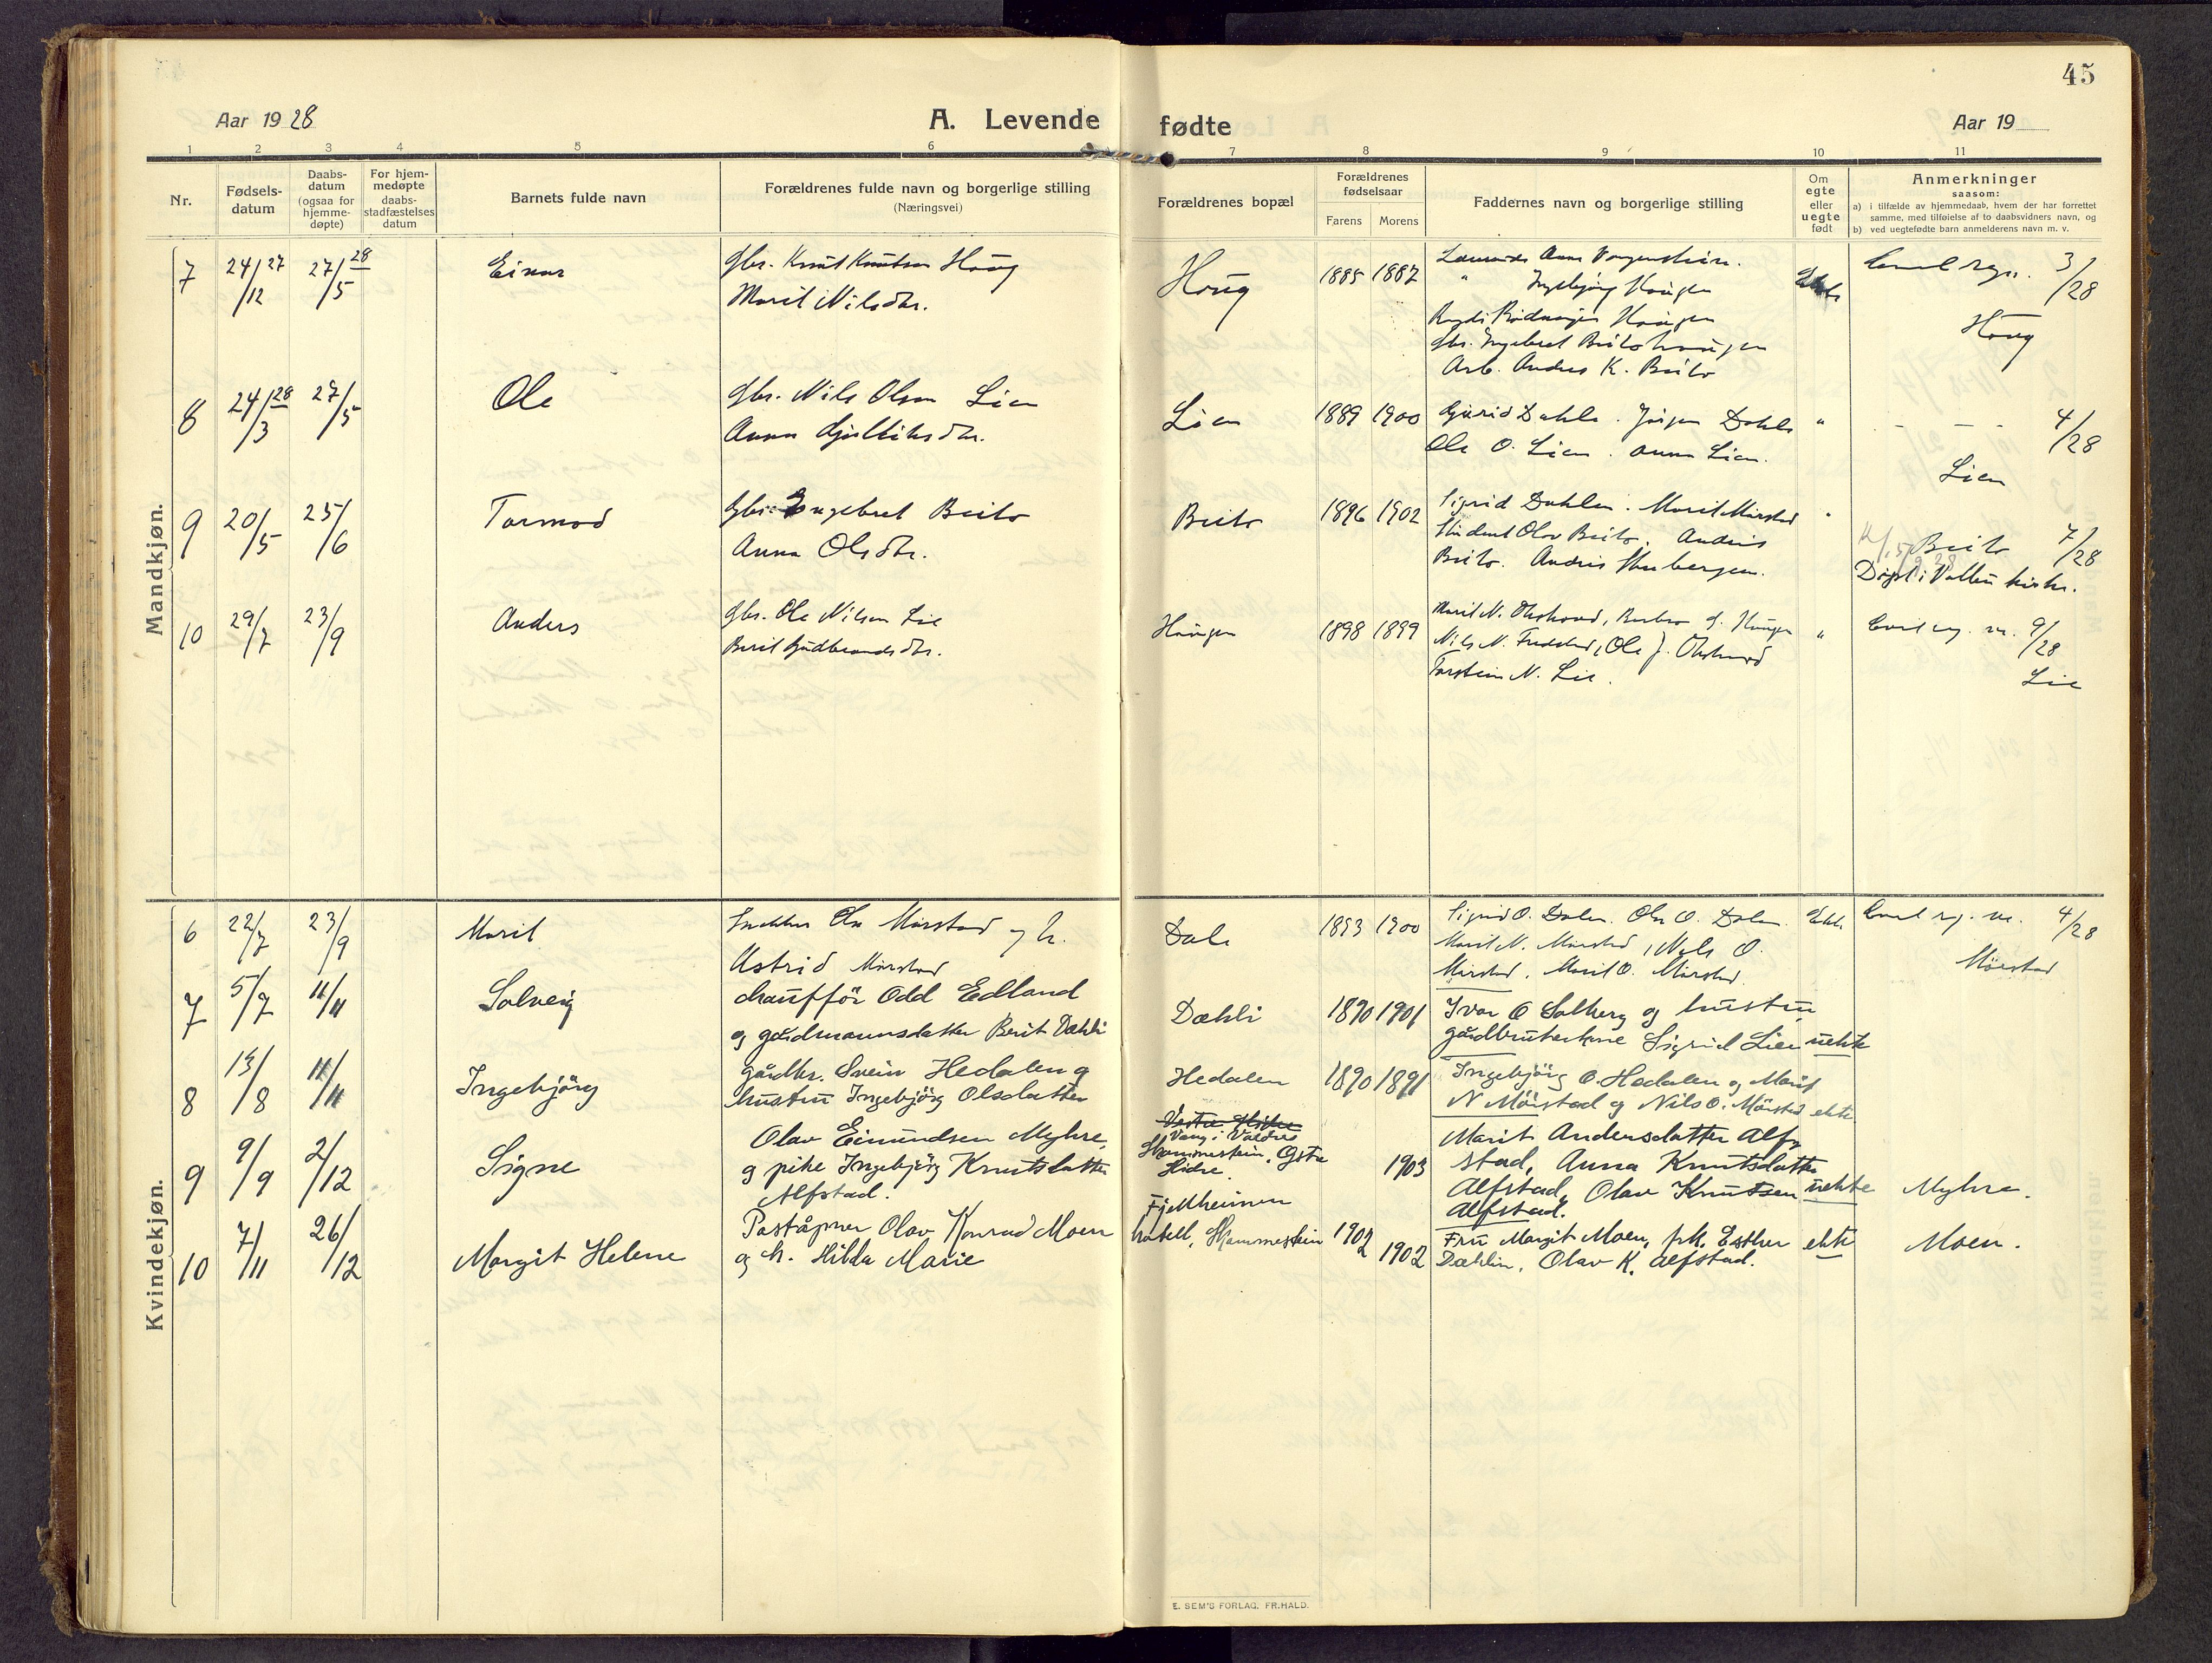 45
Aar 1928
A. Levende fødte
Aar 19
1 2 3 4 5 6 7 8 9 10 11
Nr.
Fødsels-
datum
Daabs-
datum
(ogsaa for
hjemme-
døpte)
For hjem-
medøpte
daabs-
stadfæstelses
datum
Barnets fulde navn
Forældrenes fulde navn og borgerlige stilling
(Næringsvei)
Forældrenes bopæl
Forældrenes
fødselsaar
Farens Morens
Faddernes navn og borgerlige stilling
Om
egte
eller
uegte
født
Anmerkninger
saasom:
a) i tilfælde av hjemmedaab, hvem der har forrettet
samme, med tilføielse af to daabsvidners navn, og
b) ved uegtefødte barn anmelderens navn m. v.
Mandkjøn.
7 24/12 27 27/5 28 Einar
Gbr. Knut Knutsen Haug
Marit Nilsdtr.
Haug 1885 1887
Anna
" Ingebjørg Haugen
Haugen
Gbr. Ingebret Beitohaugen
Arb. Andres K. Beito
3/28
Haug
8 24/3 28 27/5 Ole
Gbr. Nils Olsen Lien
Anna
Lien 1889 1900
Gjurid Dahle. Jørgen Dahle "
Ole O. Lien. Anna Lien.
- - - 4/28
Lien
9 20/5 25/6 Tormod
Gbr. Ingebret Beito
Anna Olsdtr.
Beito 1896 1902
Sigrid Dahlen. Marit Mørstad "
Student Olav Beito. Andris
Beito. Andris
Beito 7/28
Døpt i Volbu kirke.
10 29/7 23/9 Anders
Gbr. Ole Nilsen Lie
Berit Gudbrandsdtr.
Haugen 1898 1899
Marit N. Okshovd, Barbro G. Haugen "
Nils N. , Ole J. Okshovd
Torstein N. Lie.
9/28
Lie
Kvindekjøn.
6 22/7 23/9 Marit
Snekker Ole Mørstad og h.
Astrid Mørstad
Dale 1893 1900
Sigrid O. Dalen. Ole O. Dalen. Ekte
Marit N. Mørstad, Nils O.
Mørstad, Marit O. Mørstad.
4/28
Mørstad
7 5/7 11/11 Solveig
chauffør Odd Edland
og gårdmannsdatter Berit Dæhli
Dæhli 1890 1901
Ivar O Solberg og hustru
gårdbrukerkone Sigrid Lien uekte
8 15/8 11/11 Ingebjörg
gårdbr. Svein Hedalen og
hustru Ingebjörg Olsdatter
Hedalen 1890 1891
Ingebjörg O. Hedalen og Marit
N Mörstad og Nils O. Mörstad ekte
9 9/9 2/12 Signe
Olav Eimundsen Myhre,
og pike Ingebjörg Knutsdatter
Alfstad.
Vestre Slidre
Vang i Valdres
Hommerstein, Östre
Slidre.
1903
Marit Andersdatter Alf-
stad, Anna Knutsdatter
Alfstad, Olav Knutsen uekte
Alfstad.
Myhre.
10 7/11 26/12 Margit Helene
Poståpner Olav Konrad Moen
og h. Hilda Marie
Fjellheimen
hotell, 1902
1902
Fru Margit Moen, frk. Esther ekte
Dæhlin, Olav K. Alfstad.
Moen.
E. SEM'S FORLAG, FR.HALD.